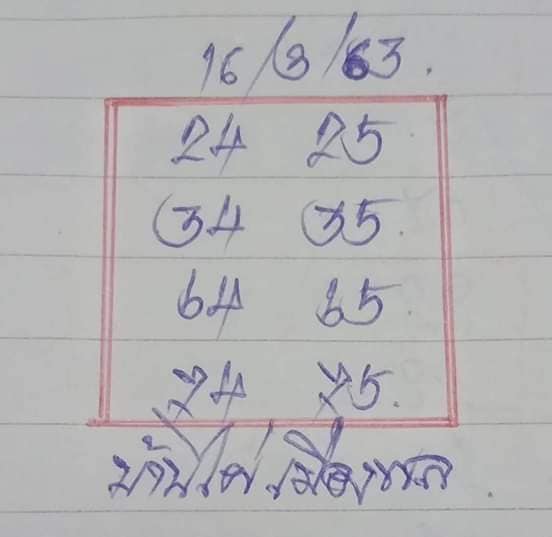 16/3/63.
24 25
34 35
64 65
74 75.
บ้านไผ่ เมืองพล.